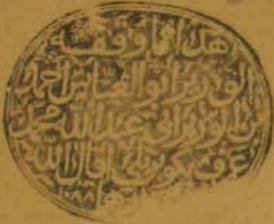 هذا مما وقفه
الوزير ابو العباس احمد
بن الوزير ابي عبد الله محمد
عرف بكوپريلي اقال الله
١٠٨٨